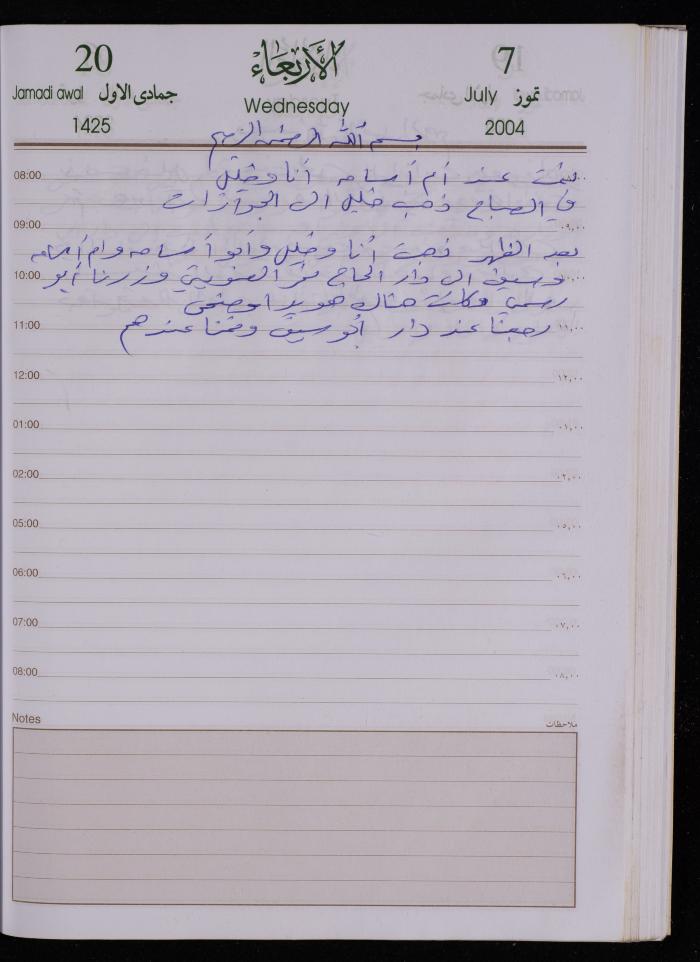 20 الأربعاء 7
Jamadi awal جمادى الاول Wednesday July تموز
1425 2004
بسم الله الرحمن الرحيم
08:00 بت عند أم أسامه أنا وخليل
في الصباح ذهب خليل الى الجوازات
09:00 ٠٩,٠٠
بعد الظهر ذهبت أنا وخليل وأبو أسامه وام أسامه
10:00 وسيف الى دار الحاج وزرنا أبو
رسمي وكانت هناك هويدا وضحى
11:00 رجعنا عند دار أبو سيف ونمنا عندهم ١١,٠٠
12:00 ١٢,٠٠
01:00 ٠١,٠٠
02:00 ٠٢,٠٠
05:00 ٠٥,٠٠
06:00 ٠٦,٠٠
07:00 ٠٧,٠٠
08:00 ٠٨,٠٠
Notes ملاحظات